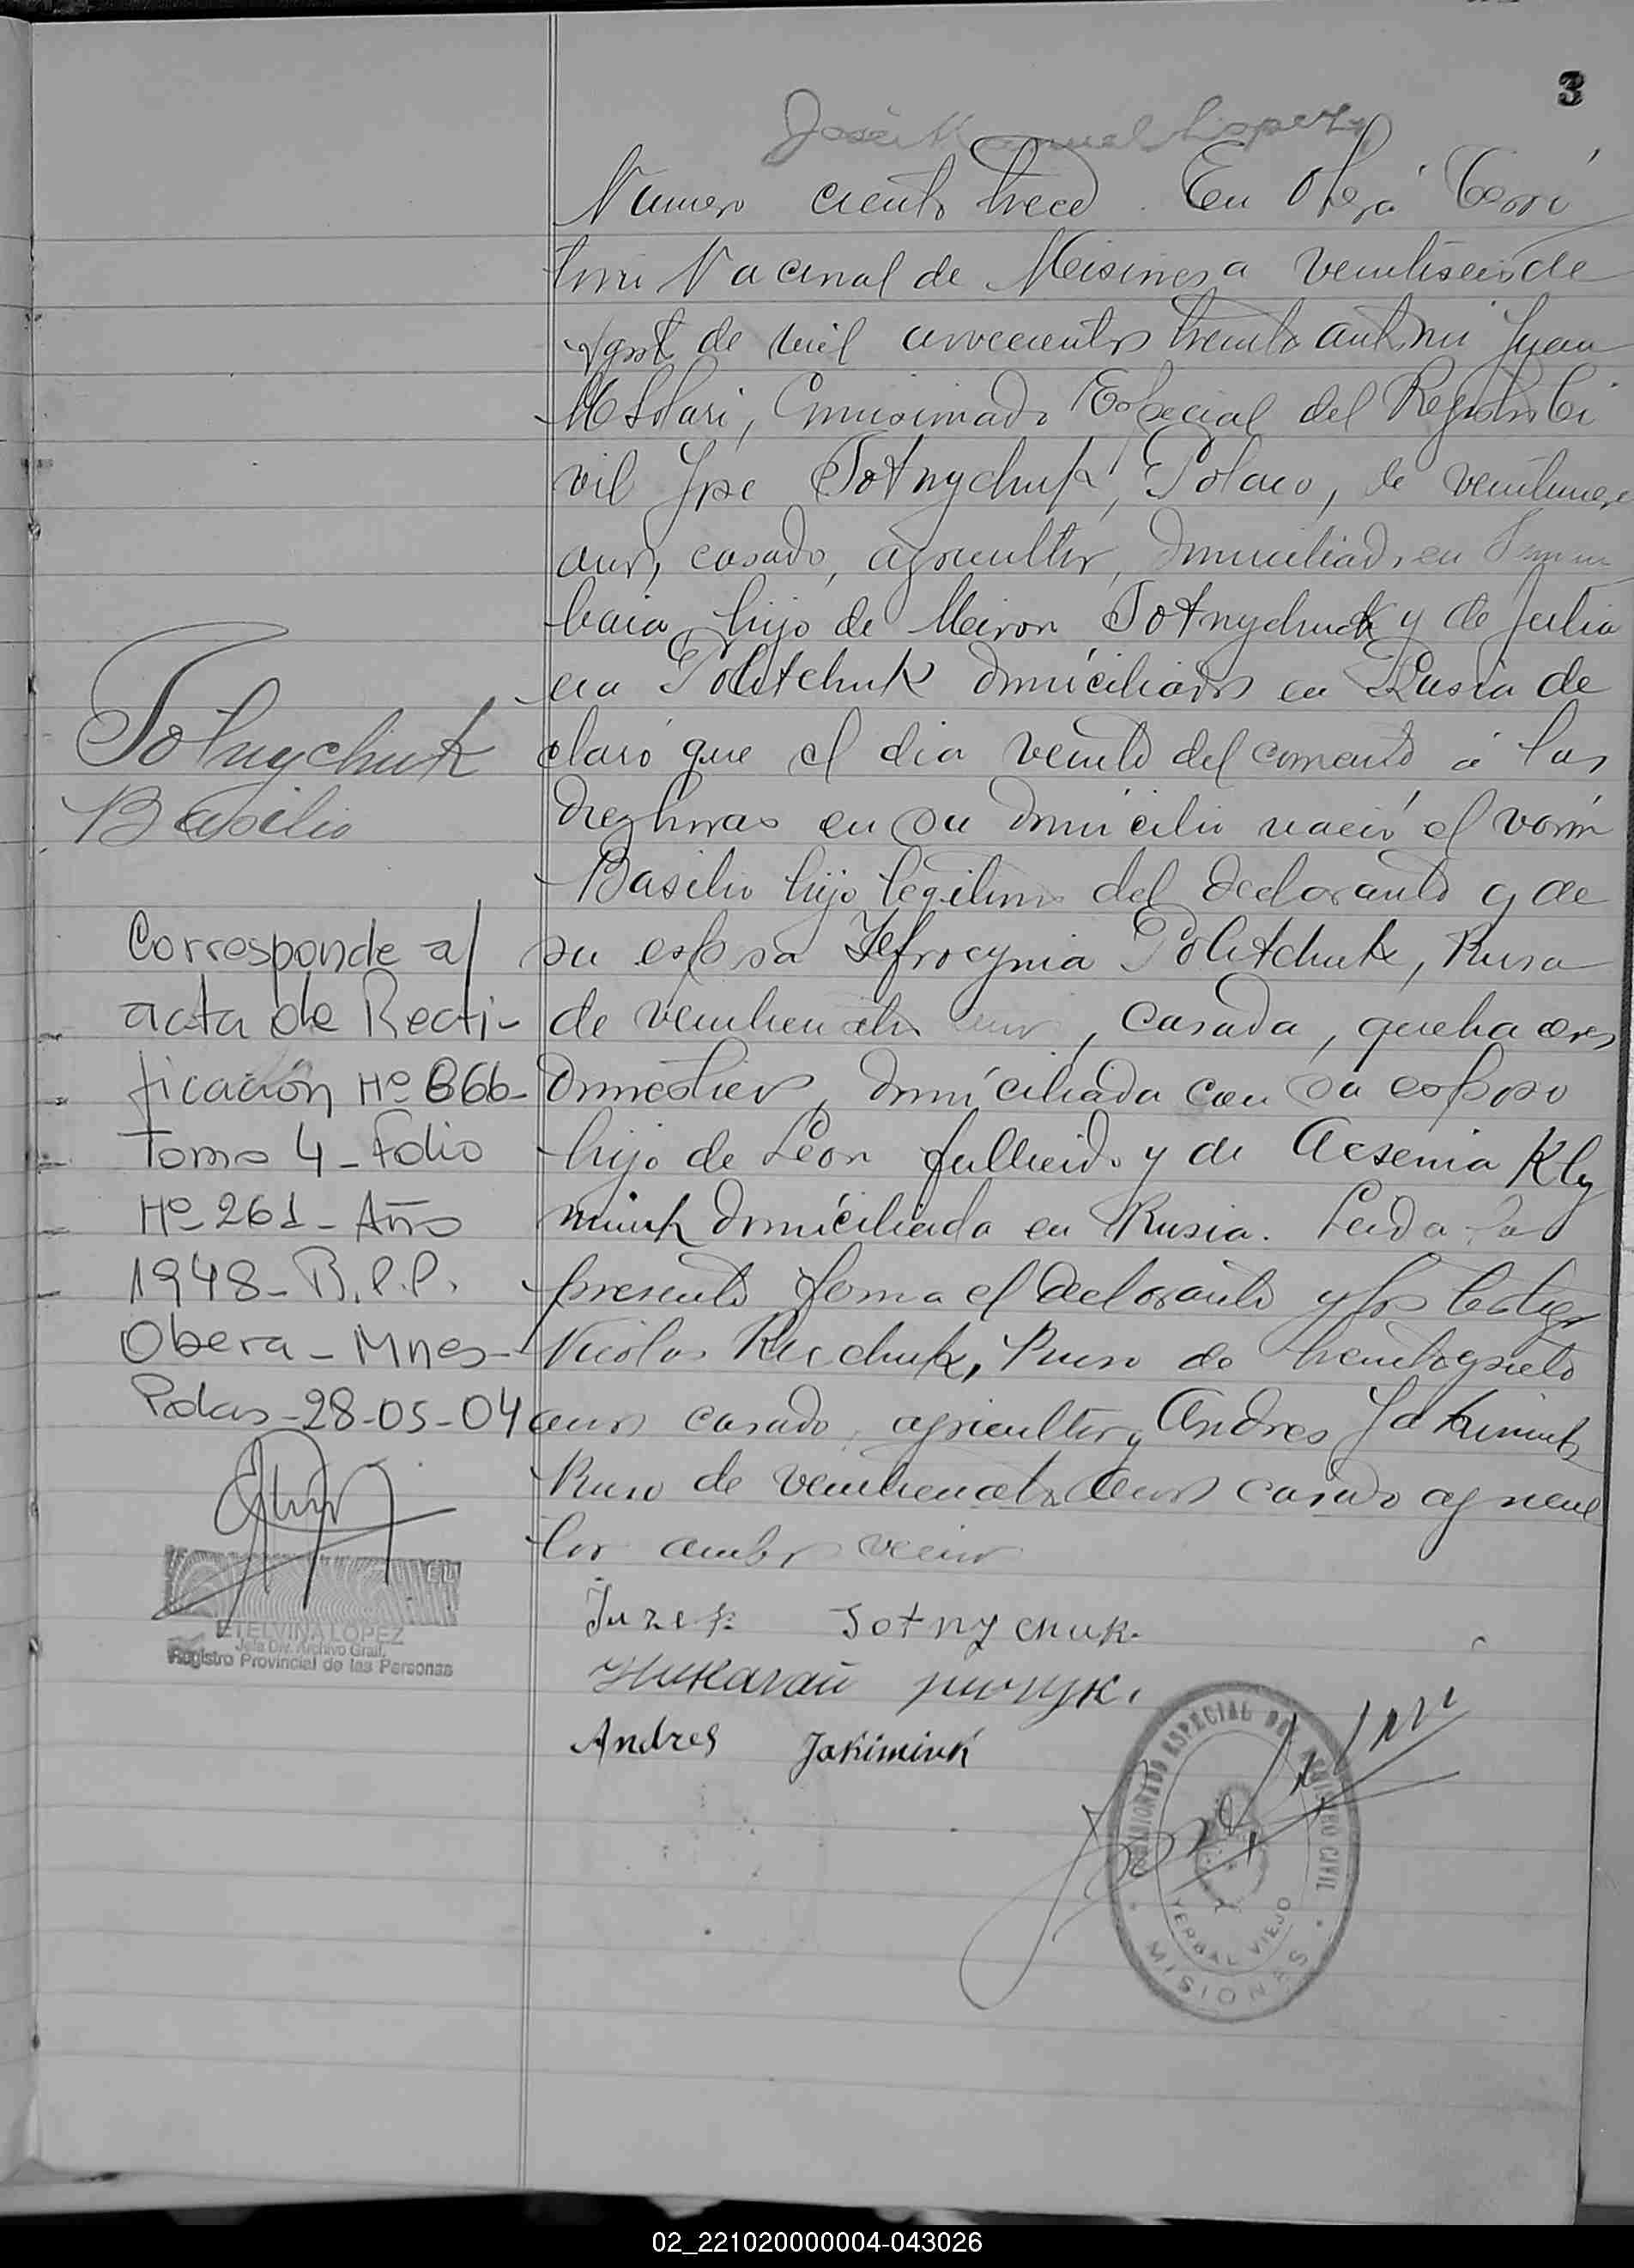 3
José Manuel Lopez
Numero ciento trece. En Oberá Terri
torio Nacional de Misiones a veintiseis de
Agosto de mil novecientos treinta ante mi Juan
M Solari, Comisionado Especial del Registro Ci
vil José Totnychuk, Polaco, de veintinueve
años, casado, agricultor, domiciliado en
baia, hijo de Miron Totnychuk y de Julia
na Politchuk domiciliados en Rusia de
claró que el dia veinte del corriente á las
diez horas en su domicilio nació el varón
Basilio hijo legitimo del declarante y de
su esposa Jefrocynia Politchuk, Rusa
de veinticuatro años, casada, quehaceres
domésticos, domiciliada con su esposo
hijo de León fallecido y de Acsenia Kly
miuk domiciliada en Rusia. Leida la
presente firma el declarante y los testigos
Nicolas , Ruso de treinta y siete
años casado, agricultor y Andres Jakimiuk
Ruso de veinticuatro años casado agricul
tor ambos vecinos
Juzef Sotnychuk.
Andres Jakimiuk
Totnychuk
Basilio
Corresponde al
acta de Recti-
ficación Nº 866-
Tomo 4 - Folio
Nº 261 - Año
1948 - R.P.P.
Obera - Mnes -
Pdas - 28-05-04
ETELVINA LOPEZ
Jefa Div. Archivo Gral.
Registro Provincial de las Personas
COMISIONADO ESPECIAL DE REGISTRO CIVIL
YERBAL VIEJO
MISIONES
02_221020000004-043026